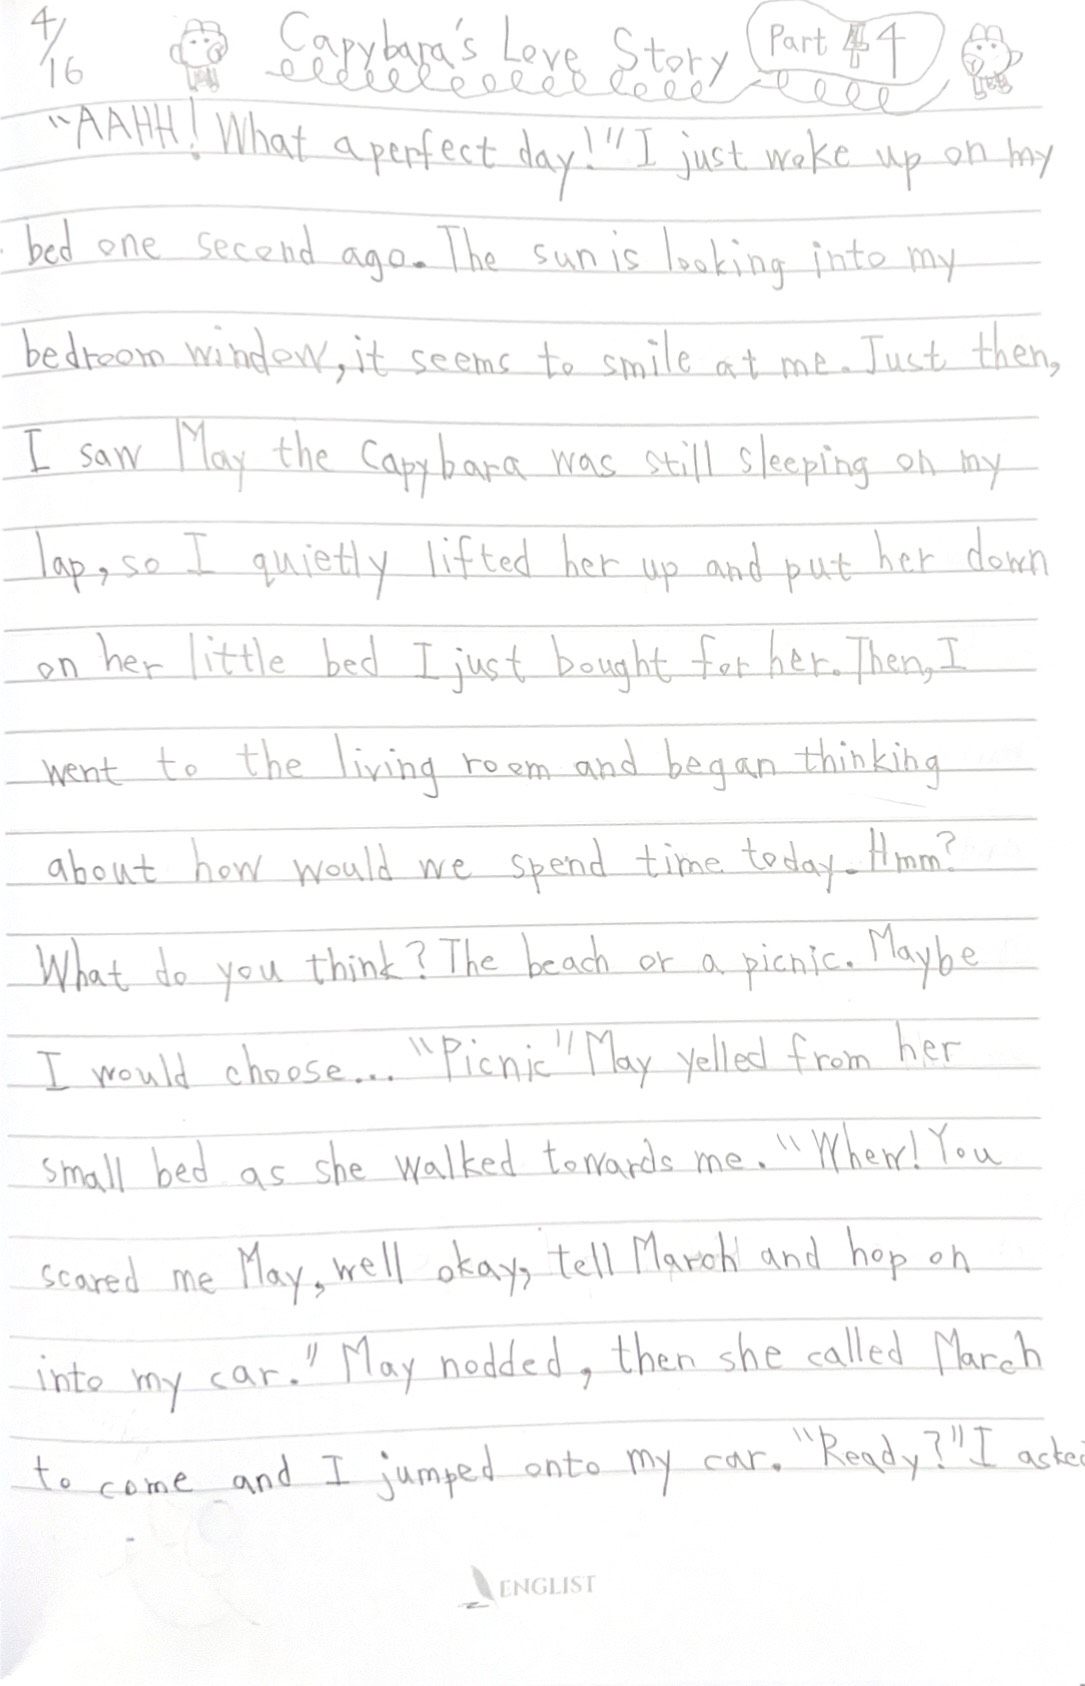 4/16
Capybara's Love Story
Part 4
"AAHH! What a perfect day!" I just woke up on my
bed one second ago. The sun is looking into my
bedroom window, it seems to smile at me. Just then,
I saw May the Capybara was still sleeping on my
lap, so I quietly lifted her up and put her down
on her little bed I just bought for her. Then, I
went to the living room and began thinking
about how would we spend time today. Hmm?
What do you think? The beach or a picnic. Maybe
I would choose... "Picnic" May yelled from her
small bed as she walked towards me. "Whew! You
scared me May, well okay, tell March and hop on
into my car." May nodded, then she called March
to come and I jumped onto my car. "Ready?" I asked
ENGLIST